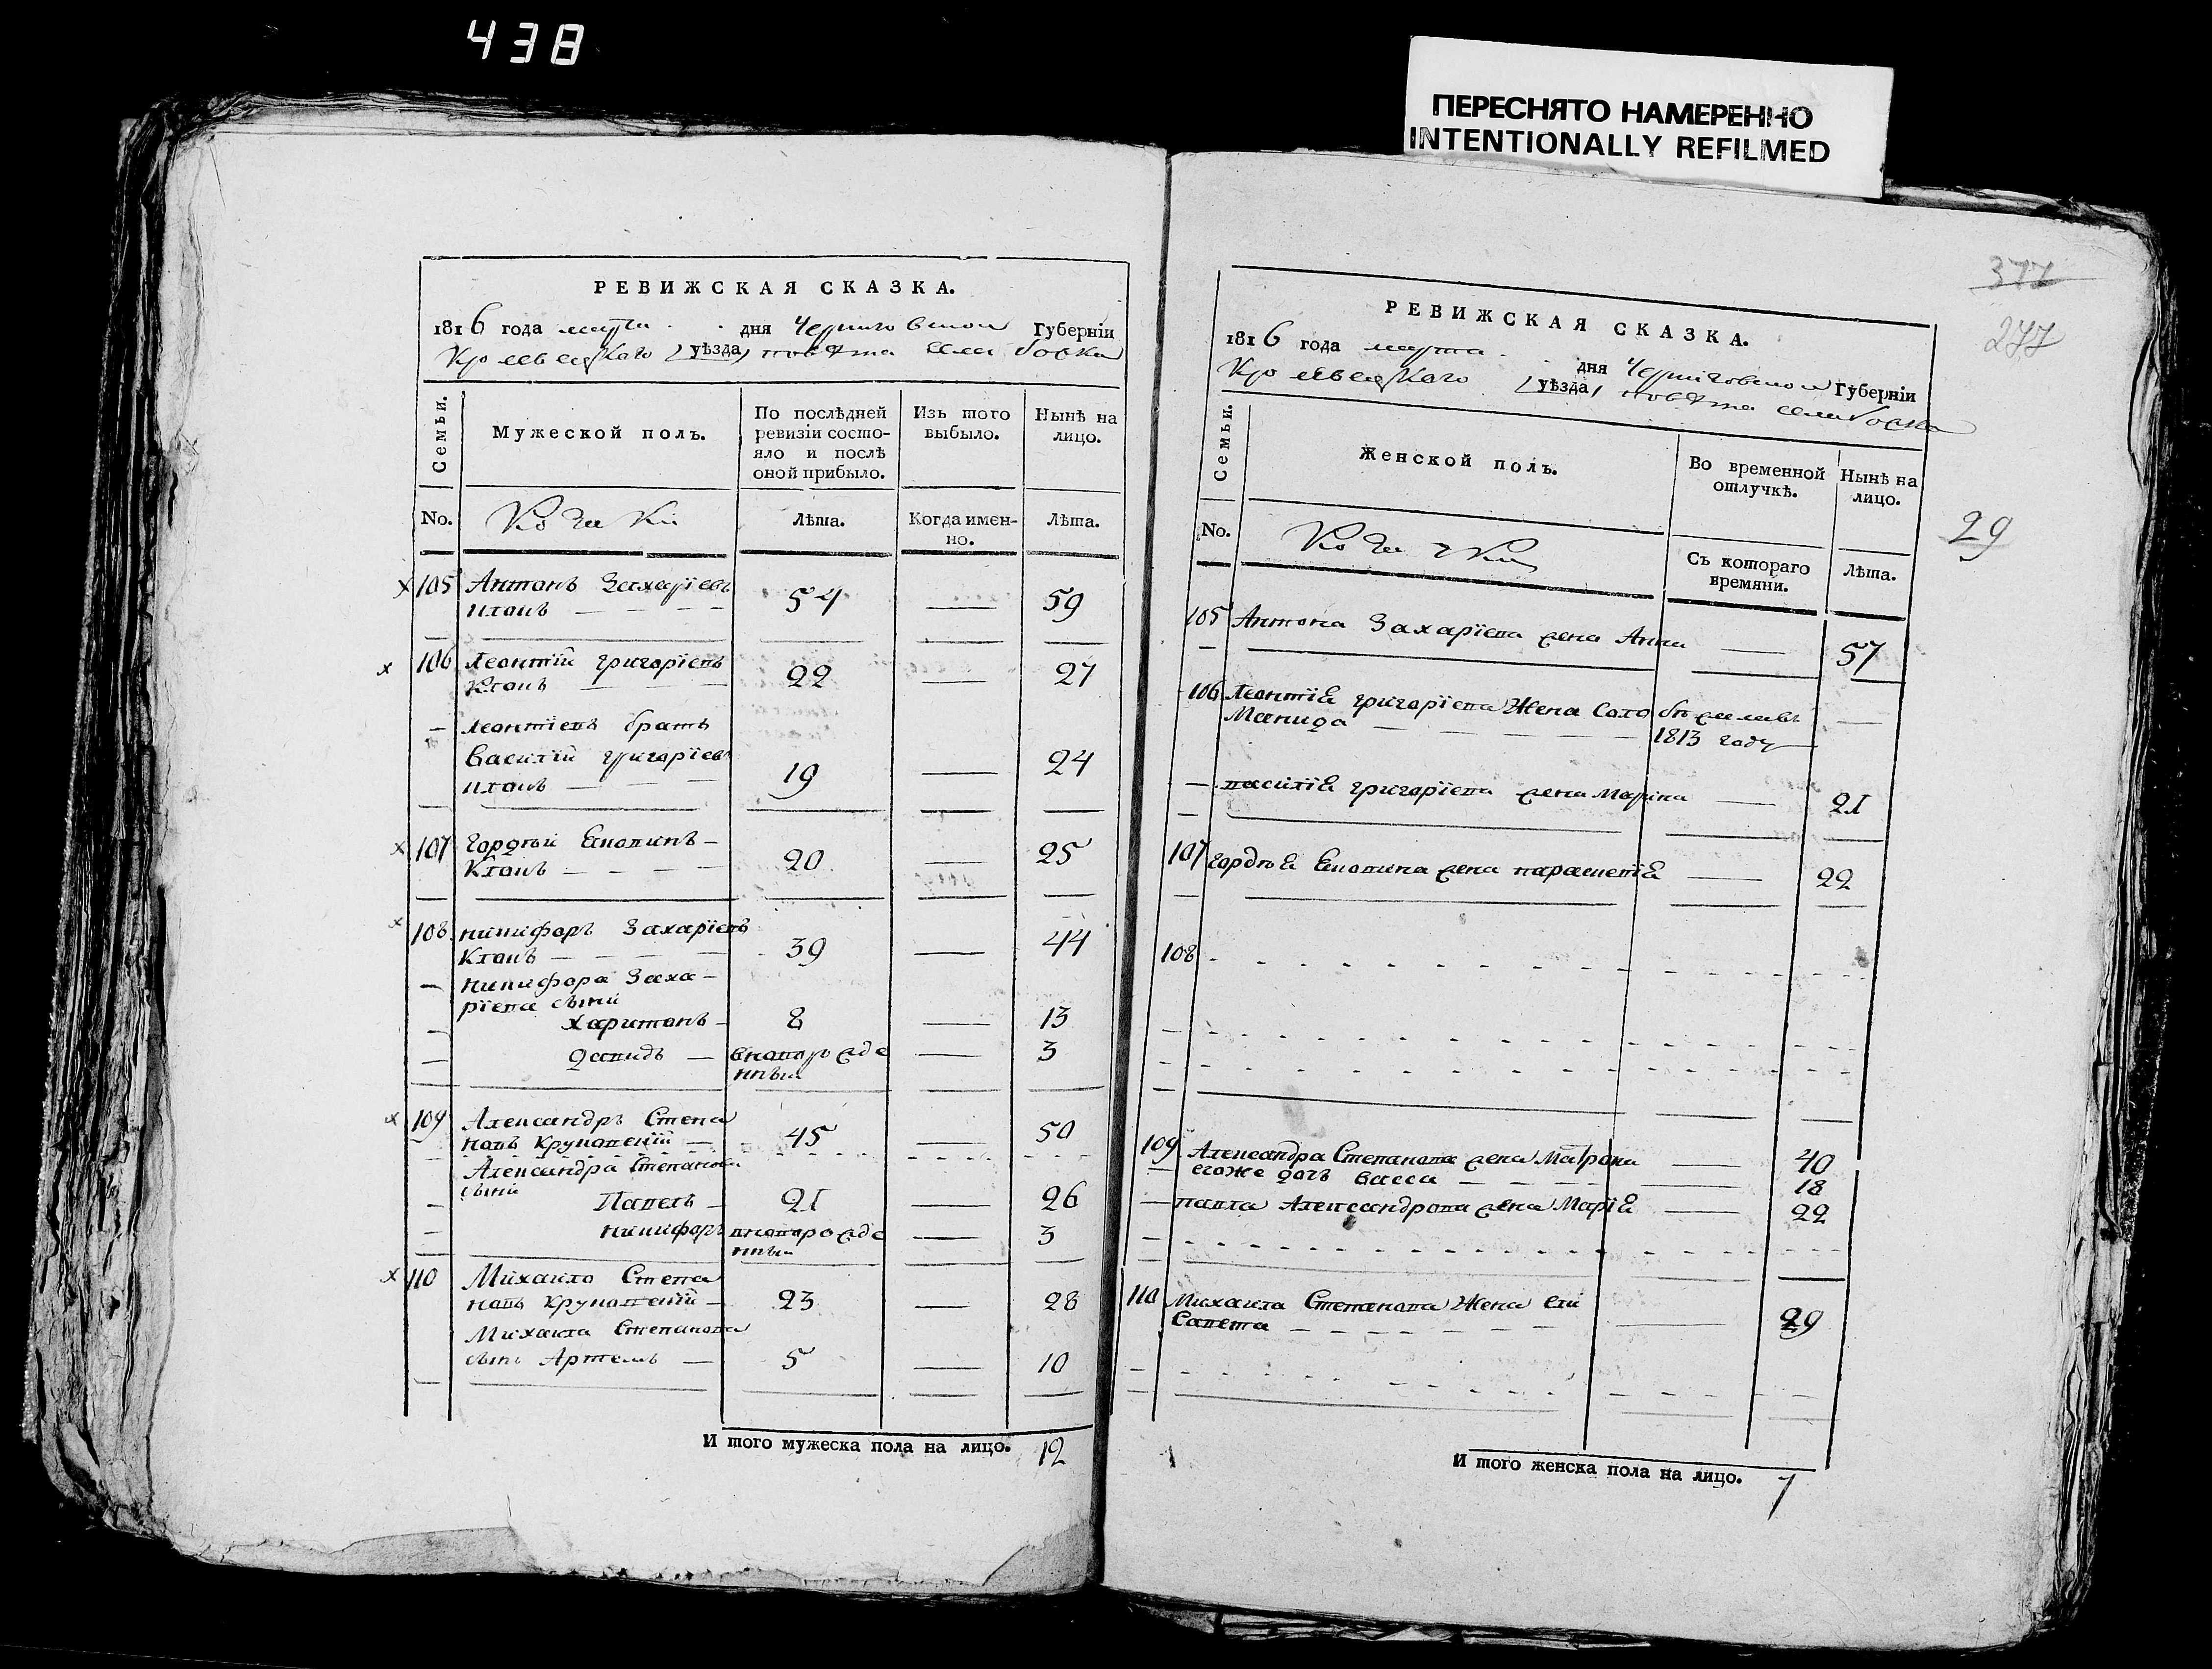 438
ПЕРЕСНЯТО НАМЕРЕННО
INTENTIONALLY REFILMED
РЕВИЖСКАЯ СКАЗКА.
1816 года марта дня Черниговской Губерніи
Кролевецкаго уѣзда, повѣта села
Семьи.
Мужеской полъ.
По послѣдней ревизіи состо-
яло и послѣ
оной прибыло.
Изъ того
выбыло.
Нынѣ на
лицо.
No.
Лѣта.
Когда имен-
но.
Лѣта.
105 Антонъ Захаріевъ
54 59
106 Леонтій григоріевъ
22 27
Леонтіевъ братъ
Василій григоріевъ
19 24
107 гордѣй
20 25
108 никифоръ Захаріевъ
39 44
никифора Заха-
ріева сыни
Харитонъ 8 13
давидъ вноворожде 3
нный
109 Александръ Степа
новъ 45 50
Александра Степанова
сыни
Павелъ 21 26
никифоръ вноворожде 3
нный
110 Михаило Степа
новъ 23 28
Михаила Степанова
сынъ Артемъ 5 10
И того мужеска пола на лицо. 12
377
277
29
РЕВИЖСКАЯ СКАЗКА.
1816 года марта дня Черниговской Губерніи
Кролевецкаго уѣзда, повѣта села
Семьи.
Женской полъ.
Во временной
отлучкѣ.
Нынѣ на
лицо.
No.
Съ котораго
времяни.
Лѣта.
105 Антона Захаріева жена Анна 57
106 Леонтія григоріева Жена
1813 году
василія григоріева жена Марина 21
107 гордѣя жена параскевія 22
108
109 Александра Степанова жена Матрона 40
егоже дочь васса 18
павла Александрова жена Марія 22
110 Михаила Степанова Жена Ели
савета 29
И того женска пола на лицо. 7